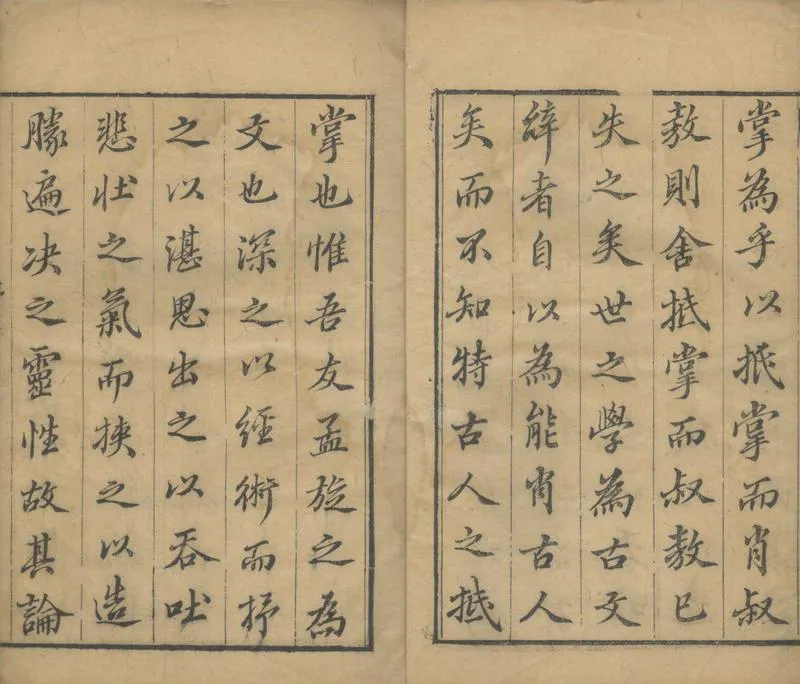 掌為乎以抵掌而肖叔
敖則舍抵掌而叔敖已
失之矣世之學為古文
辭者自以為能肖古人
矣而不知特古人之抵
掌也惟吾友孟旋之為
文也深之以經術而抒
之以湛思出之以吞吐
悲壯之氣而挾之以造
勝遍决之靈性故其論